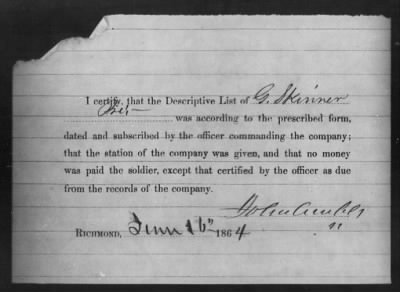 I certify, that the Descriptive List of G. Skinner
Pri was according to the prescribed form,
dated and subscribed by the officer commanding the company;
that the station of the company was given, and that no money
was paid the soldier, except that certified by the officer as due
from the records of the company.
John
RICHMOND, June 16" 1864